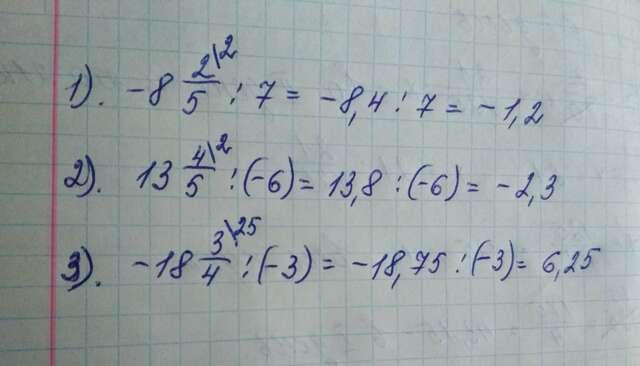 1). -8 2\2/5 : 7 = -8,4 : 7 = -1,2
2). 13 4\2/5 : (-6) = 13,8 : (-6) = -2,3
3). -18 3\25/4 : (-3) = -18,75 : (-3) = 6,25